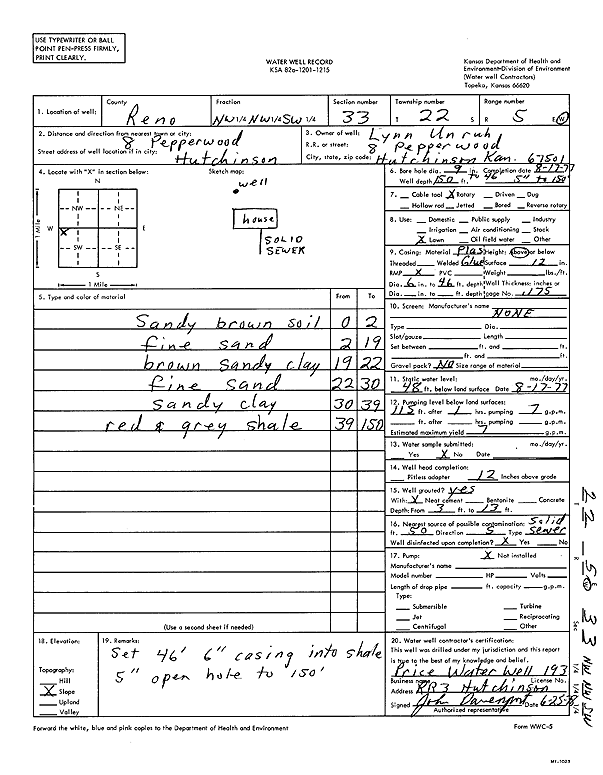 USE TYPEWRITER OR BALL
POINT PEN-PRESS FIRMLY,
PRINT CLEARLY.
WATER WELL RECORD
KSA 82a-1201-1215
Kansas Department of Health and
Environment-Division of Environment
(Water well Contractors)
Topeka, Kansas 66620
1. Location of well: County Reno Fraction NW 1/4 NW 1/4 SW 1/4 Section number 33 Township number T 22 S Range number R 5 E W
2. Distance and direction from nearest town or city: 8 Pepperwood
Street address of well location if in city: Hutchinson
3. Owner of well: Lynn Unruh
R.R. or street: 8 Pepperwood
City, state, zip code: Hutchinson Kan. 67501
4. Locate with "X" in section below:
N
NW NE
W X E
SW SE
S
1 Mile
1 Mile
Sketch map:
well
house
SOLID
SEWER
6. Bore hole dia. 9 in. to 46 Completion date 8-17-77
Well depth 150 ft. 5" to 150'
7. Cable tool X Rotary Driven Dug
Hollow rod Jetted Bored Reverse rotary
8. Use: Domestic Public supply Industry
Irrigation Air conditioning Stock
X Lawn Oil field water Other
9. Casing: Material Plas Height: Above or below
Threaded Welded Glue Surface 12 in.
RMP X PVC Weight lbs./ft.
Dia. 6 in. to 46 ft. depth Wall Thickness: inches or
Dia. in. to ft. depth gage No. .175
5. Type and color of material From To
Sandy brown soil 0 2
fine sand 2 19
brown sandy clay 19 22
fine sand 22 30
sandy clay 30 39
red & grey shale 39 150
(Use a second sheet if needed)
10. Screen: Manufacturer's name NONE
Type Dia.
Slot/gauze Length
Set between ft. and ft.
ft. and ft.
Gravel pack? NO Size range of material
11. Static water level: mo./day/yr.
48 ft. below land surface Date 8-17-77
12. Pumping level below land surfaces:
115 ft. after 1 hrs. pumping 7 g.p.m.
ft. after hrs. pumping g.p.m.
Estimated maximum yield 7 g.p.m.
13. Water sample submitted: mo./day/yr.
Yes X No Date
14. Well head completion:
Pitless adapter 12 Inches above grade
15. Well grouted? yes
With: X Neat cement Bentonite Concrete
Depth: From 3 ft. to 13 ft.
16. Nearest source of possible contamination: Solid
ft. 50 Direction S Type Sewer
Well disinfected upon completion? X Yes No
17. Pump: X Not installed
Manufacturer's name
Model number HP Volts
Length of drop pipe ft. capacity g.p.m.
Type:
Submersible Turbine
Jet Reciprocating
Centrifugal Other
18. Elevation:
Topography:
Hill
X Slope
Upland
Valley
19. Remarks:
Set 46' 6" casing into shale
5" open hole to 150'
20. Water well contractor's certification:
This well was drilled under my jurisdiction and this report
is true to the best of my knowledge and belief.
Price Water Well 193
Business name License No.
Address RR3 Hutchinson
Signed John Davenport Date 6-25-78
Authorized representative
Forward the white, blue and pink copies to the Department of Health and Environment
Form WWC-5
T 22 R 5 W Sec 33 1/4 1/4 1/4 NW NW SW